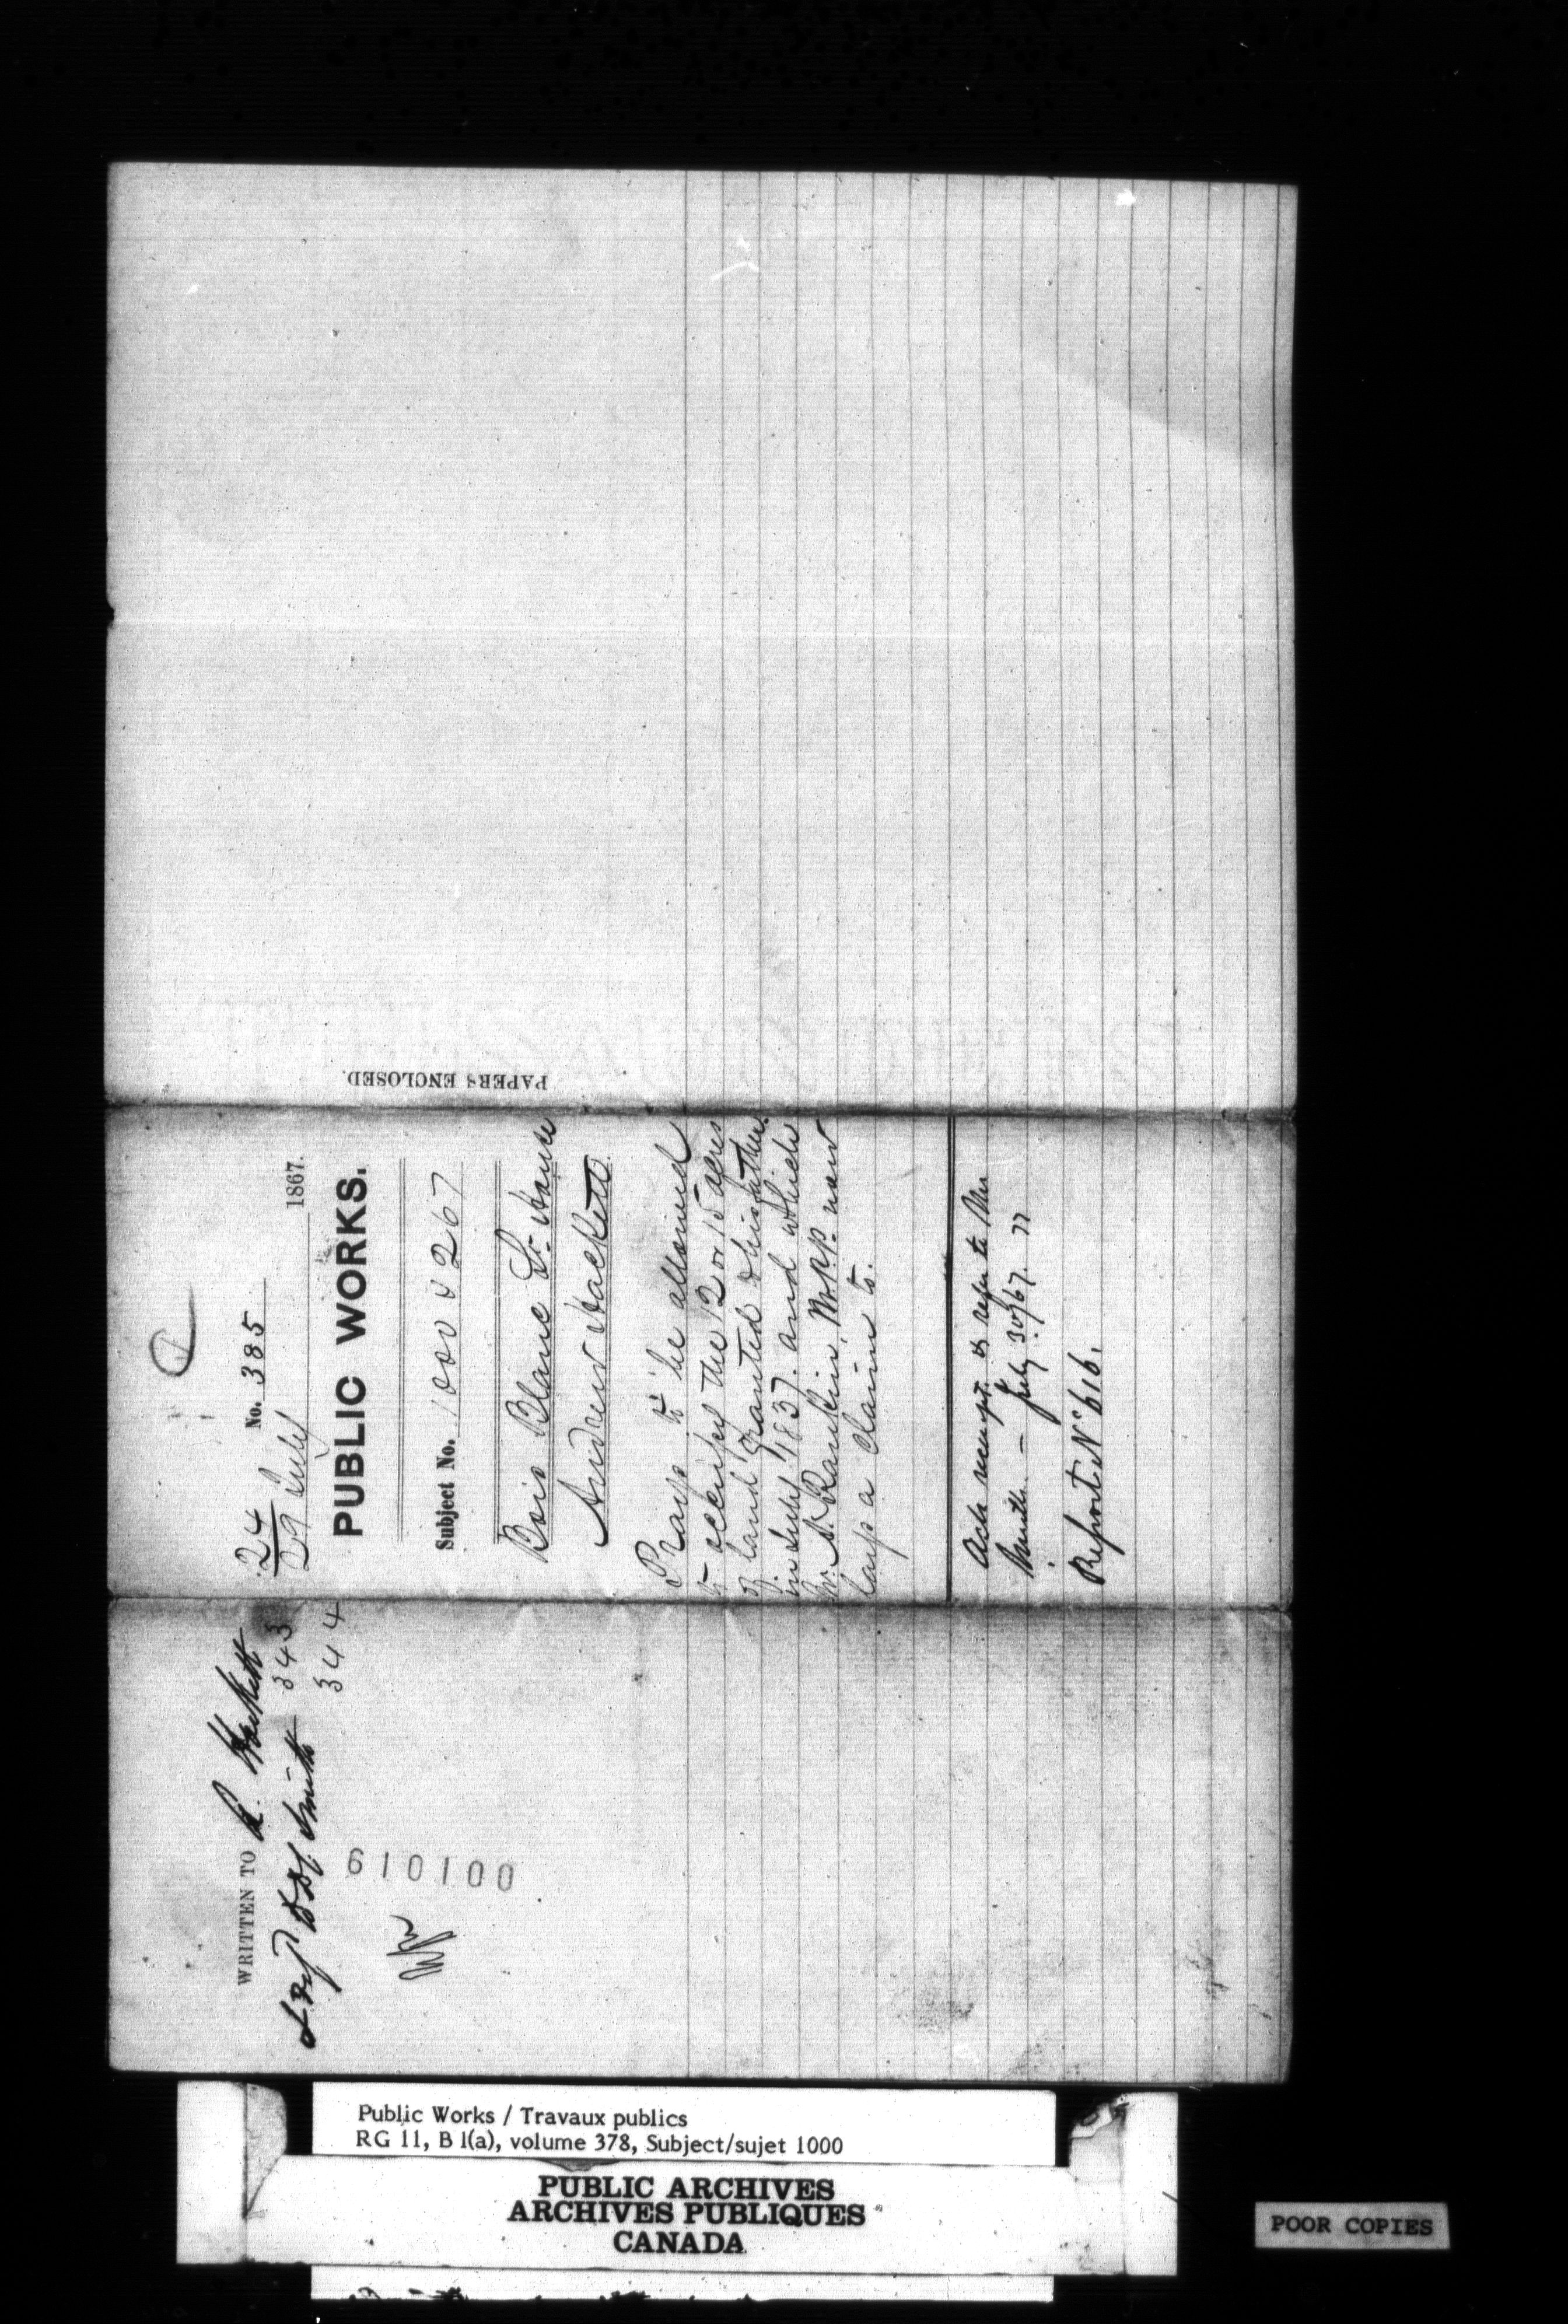 24 No. 385
29 July 1867.
PUBLIC WORKS.
Subject No. 1000 & 267
Bois Blanc Lt. House
Andrew Hackett
Prays to be allowed
to occupy the 12 or 15 acres
of land granted his father
in July 1837. and which
Mr. A. Rankin, M.P.P. now
lays a claim to.
Ack receipt. & refer to Mr
Smith. – July 30/67.
Report No 616.
PAPERS ENCLOSED.
WRITTEN TO A. Hackett 343
Smith 344
610100
Public Works / Travaux publics
RG 11, B 1(a), volume 378, Subject/sujet 1000
PUBLIC ARCHIVES
ARCHIVES PUBLIQUES
CANADA
POOR COPIES